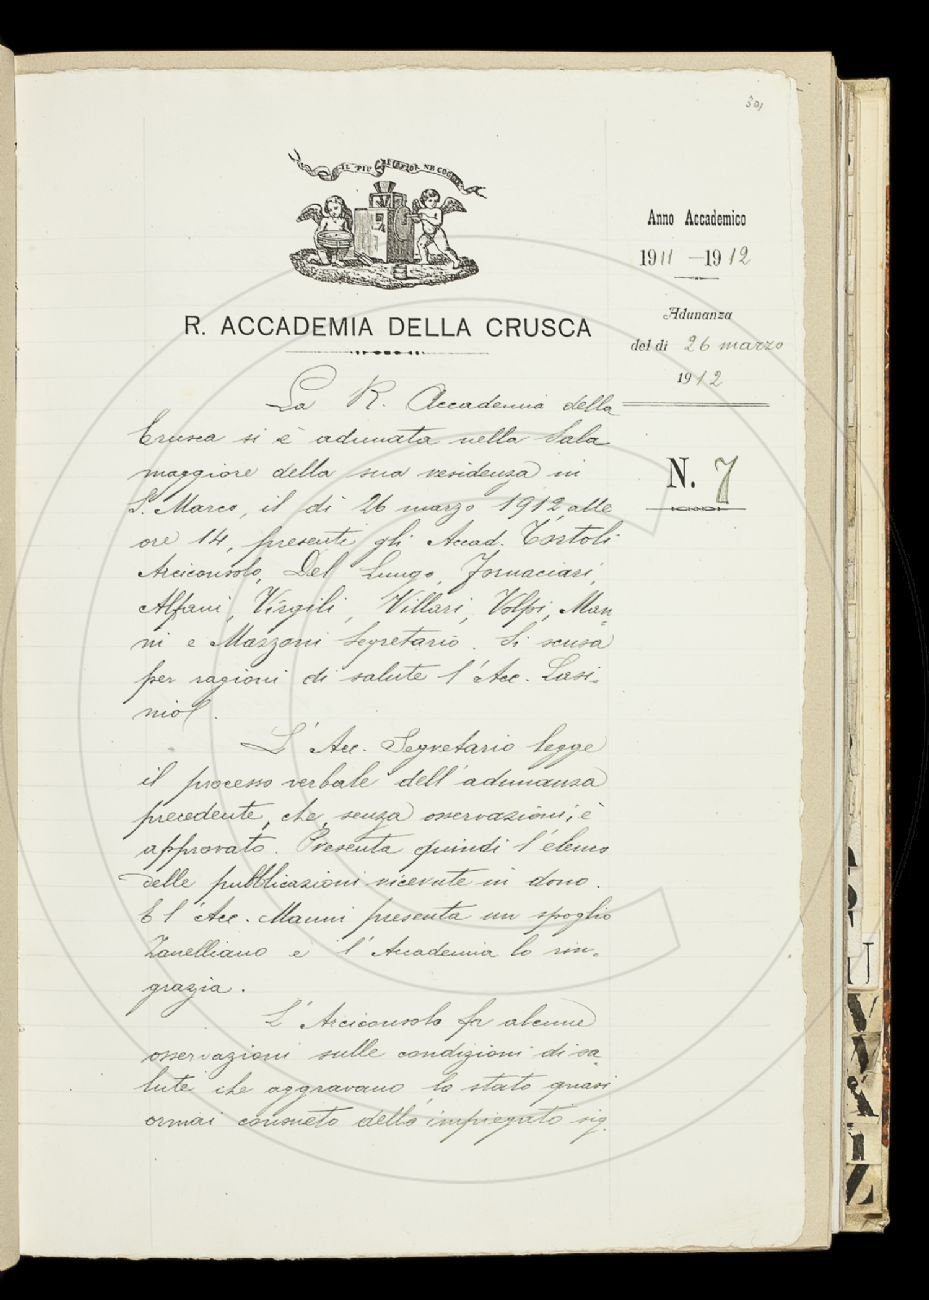 301
IL PIÙ BEL FIOR NE COGLIE
R. ACCADEMIA DELLA CRUSCA
Anno Accademico
1911 - 1912
Adunanza
del dì 26 marzo
1912
N. 7
La R. Accademia della
Crusca si è adunata nella Sala
maggiore della sua residenza in
S. Marco, il dì 26 marzo 1912 alle
ore 14, presenti gli Accad. Tortoli
Arciconsolo, Del Lungo, Fornaciari,
Alfani, Virgili, Villari, Volpi, Man=
ni e Mazzoni Segretario. Si scusa
per ragioni di salute l'Acc. Lasi-
nio.
L'Acc. Segretario legge
il processo verbale dell'adunanza
precedente, che, senza osservazioni, è
approvato. Presenta quindi l'elenco
delle pubblicazioni ricevute in dono.
E l'Acc. Manni presenta un spoglio
Zanelliano e l'Accademia lo rin-
grazia.
L'Arciconsolo fa alcune
osservazioni sulle condizioni di sa
lute che aggravano lo stato quasi
ormai consueto dello impiegato sig.
U
V
X
Z